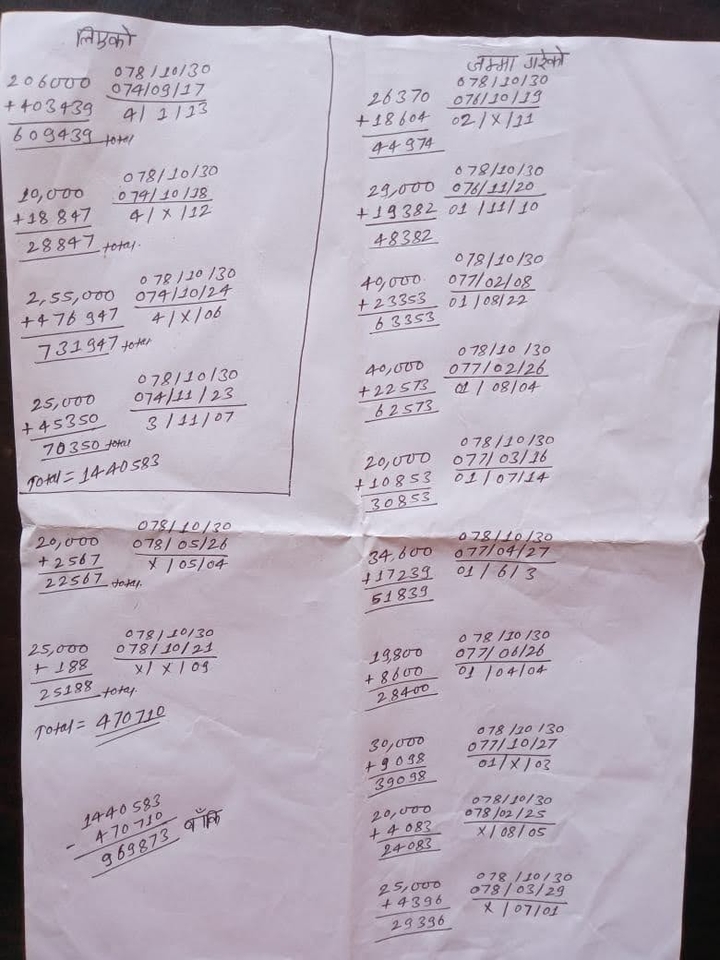 लिएको
206000 078/10/30
+403439 074/09/17
609439 total 4/1/13
10,000 078/10/30
+18847 074/10/18
28847 total. 4/x/12
2,55,000 078/10/30
+476947 074/10/24
731947 total 4/x/06
25,000 078/10/30
+45350 074/11/23
70350 total 3/11/07
Total = 1440583
20,000 078/10/30
+2567 078/05/26
22567 total. x/05/04
25,000 078/10/30
+188 078/10/21
25188 total. x/x/09
Total = 470710
1440583
- 470710
969873 बाँकि
जम्मा गरेको
26370 078/10/30
+18604 076/10/19
44974 02/x/11
29,000 078/10/30
+19382 076/11/20
48382 01/11/10
40,000 078/10/30
+23353 077/02/08
63353 01/08/22
40,000 078/10/30
+22573 077/02/26
62573 01/08/04
20,000 078/10/30
+10853 077/03/16
30853 01/07/14
34,600 078/10/30
+17239 077/04/27
51839 01/6/3
19,800 078/10/30
+8600 077/06/26
28400 01/04/04
30,000 078/10/30
+9098 077/10/27
39098 01/x/03
20,000 078/10/30
+4083 078/02/25
24083 x/08/05
25,000 078/10/30
+4396 078/03/29
29396 x/07/01